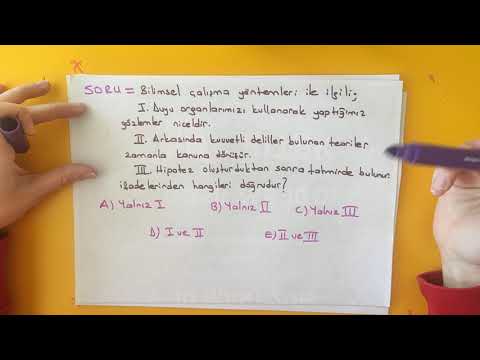 SORU = Bilimsel çalışma yöntemleri ile ilgili;
I. Duyu organlarımızı kullanarak yaptığımız
gözlemler niceldir.
II. Arkasında kuvvetli deliller bulunan teoriler
zamanla kanuna dönüşür.
III. Hipotez oluşturduktan sonra tahminde bulunur.
ifadelerinden hangileri doğrudur?
A) Yalnız I B) Yalnız II C) Yalnız III
D) I ve II E) II ve III